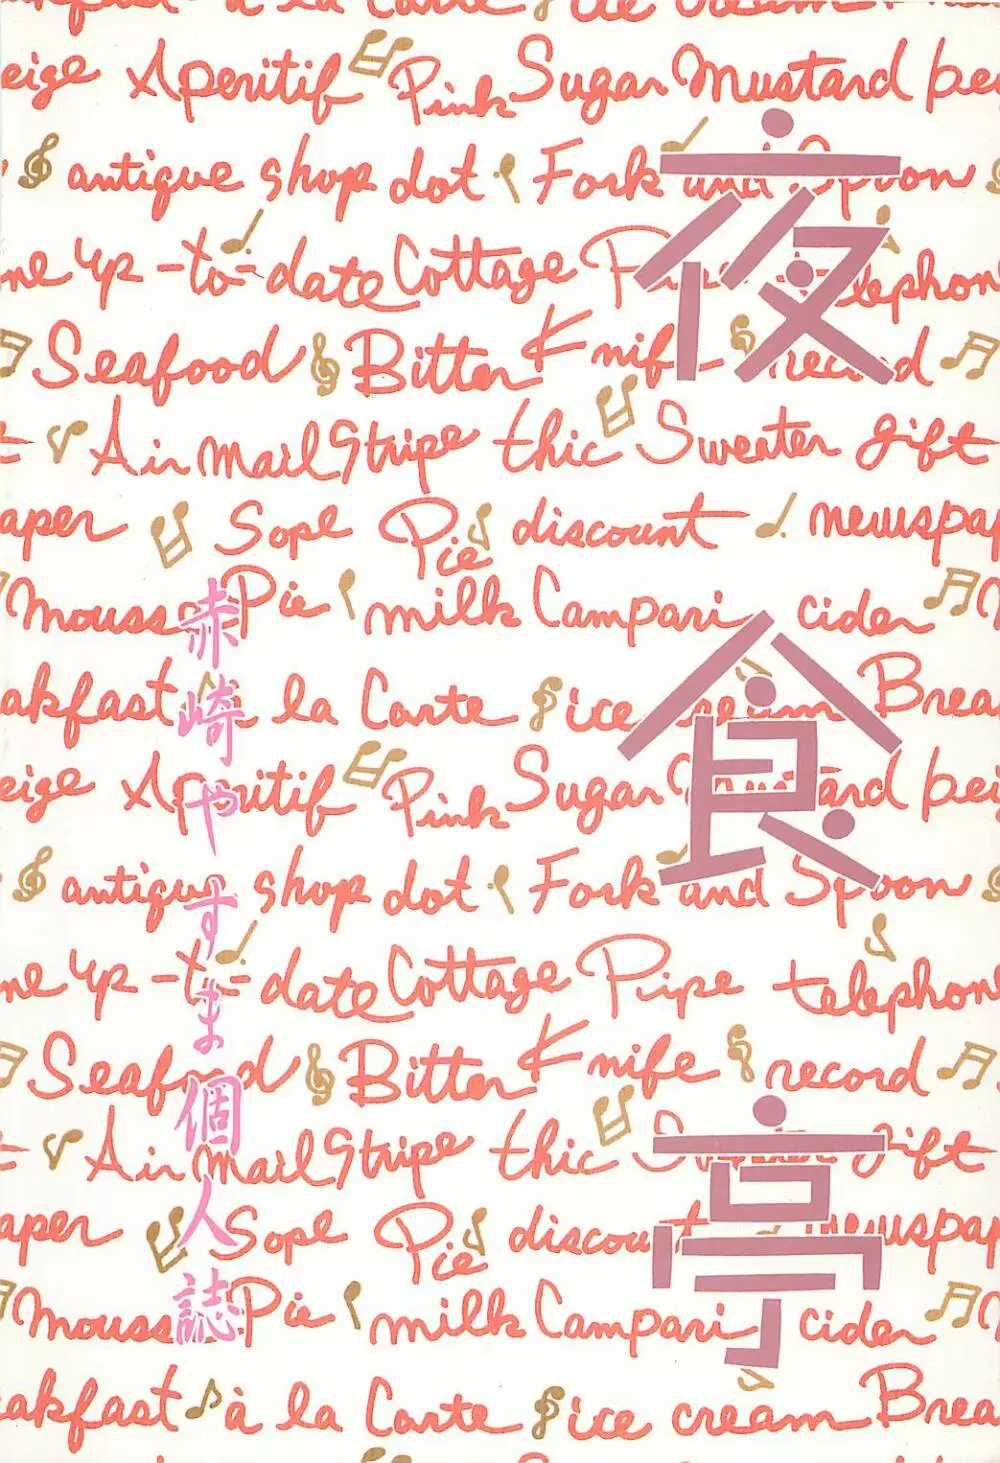 夜食亭
赤崎やすま個人誌
à la Carte ice cream
eige Aperitif Pink Sugar Mustard bei
antique shop dot Fork and Spoon
me up-to-date Cottage telephon
Seafood Bitter Knife record
Air mail Stripe thic Sweater gift
aper Sope Pie discount newspap
Mousse Pie milk Campari cider
akfast à la Carte ice cream Brea
eige Aperitif Pink Sugar Mustard bei
antique shop dot Fork and Spoon
me up-to-date Cottage Pipe telephon
Seafood Bitter Knife record
Air mail Stripe thic Sweater gift
aper Sope Pie discount newspap
Mousse Pie milk Campari cider
akfast à la Carte ice cream Brea